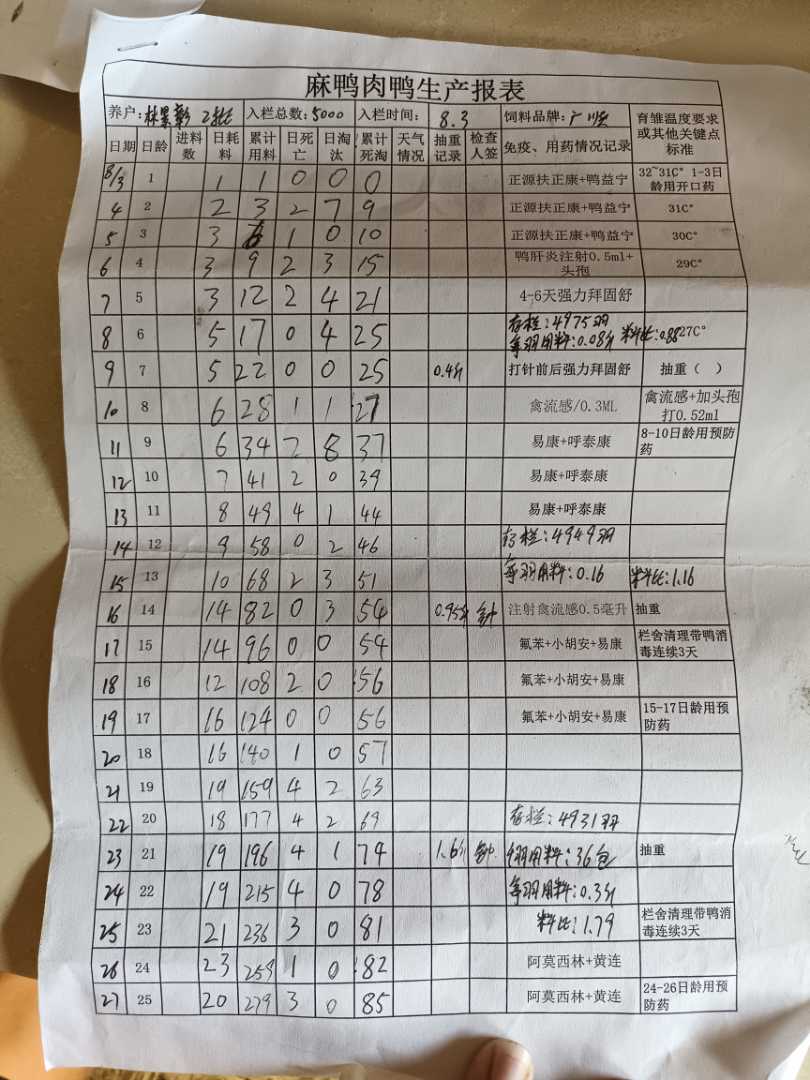 麻鸭肉鸭生产报表
养户: 林景彰 2批 入栏总数:5000 入栏时间: 8.3 饲料品牌: 广川 育雏温度要求或其他关键点标准
日期 日龄 进料数 日耗料 累计用料 日死亡 日淘汰 累计死淘 天气情况 抽重记录 检查人签 免疫、用药情况记录
8/3 1 1 1 0 0 0 正源扶正康+鸭益宁 32~31C° 1-3日龄用开口药
4 2 2 3 2 7 9 正源扶正康+鸭益宁 31C°
5 3 3 6 1 0 10 正源扶正康+鸭益宁 30C°
6 4 3 9 2 3 15 鸭肝炎注射0.5ml+头孢 29C°
7 5 3 12 2 4 21 4-6天强力拜固舒
8 6 5 17 0 4 25 存栏:4975羽 每羽用料:0.08斤 料比:0.88 27C°
9 7 5 22 0 0 25 0.4斤 打针前后强力拜固舒 抽重（ ）
10 8 6 28 1 1 27 禽流感/0.3ML 禽流感+加头孢打0.52ml
11 9 6 34 2 8 37 易康+呼泰康 8-10日龄用预防药
12 10 7 41 2 0 39 易康+呼泰康
13 11 8 49 4 1 44 易康+呼泰康
14 12 9 58 0 2 46 存栏:4949羽
15 13 10 68 2 3 51 每羽用料:0.16 料比:1.16
16 14 14 82 0 3 54 0.95斤 钟 注射禽流感0.5毫升 抽重
17 15 14 96 0 0 54 氟苯+小胡安+易康 栏舍清理带鸭消毒连续3天
18 16 12 108 2 0 56 氟苯+小胡安+易康
19 17 16 124 0 0 56 氟苯+小胡安+易康 15-17日龄用预防药
20 18 16 140 1 0 57
21 19 19 159 4 2 63
22 20 18 177 4 2 69 存栏:4931羽
23 21 19 196 4 1 74 1.6斤 钟 羽用料:36包 抽重
24 22 19 215 4 0 78 每羽用料:0.3斤
25 23 21 236 3 0 81 料比:1.79 栏舍清理带鸭消毒连续3天
26 24 23 259 1 0 82 阿莫西林+黄连
27 25 20 279 3 0 85 阿莫西林+黄连 24-26日龄用预防药